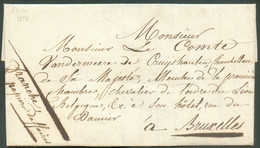 Monsieur
Monsieur Le Comte
Vandermeere de Cruyshauthem, Chambellan
de Sa Majesté, Membre de la première
Chambre, Chevalier de l'ordre du Lion
Belgique, &c à son hôtel, rue du
Damier
à Bruxelles
franche